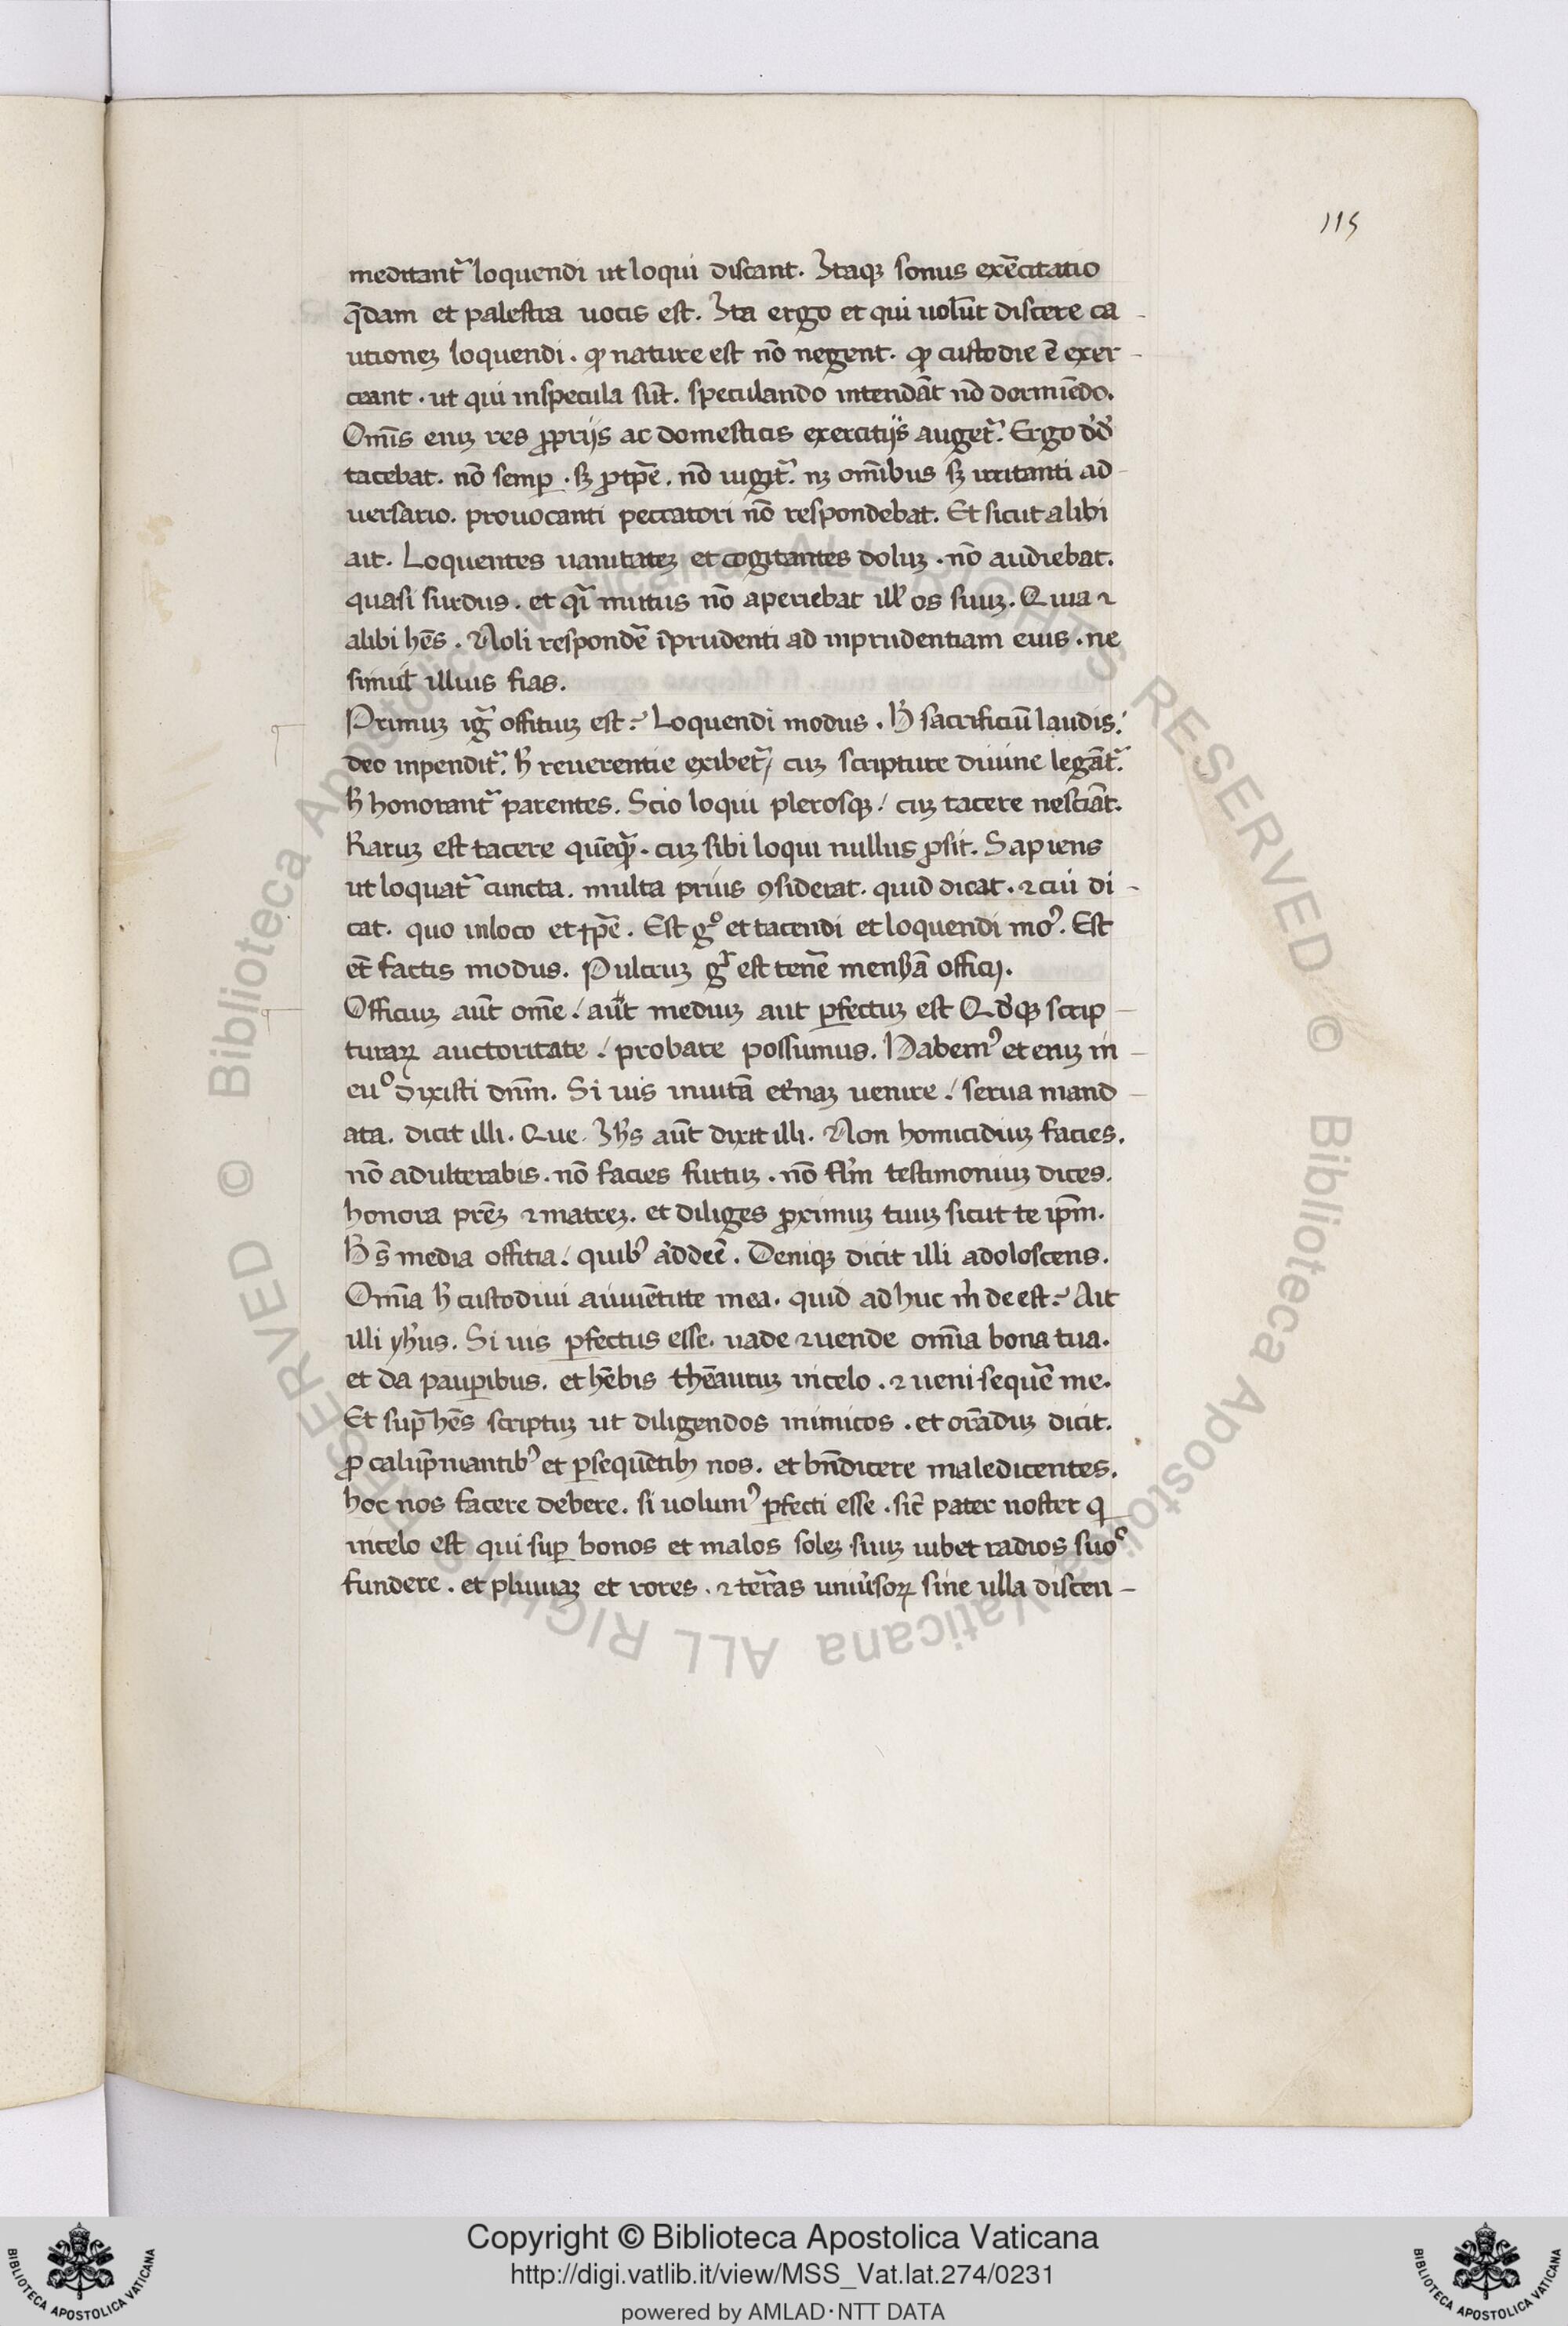 115
meditant᷑ loquendi ut loqui discant. Itaqꝫ sonus exe᷑citatio
q̄dam et palestra uocis est. Ita ergo et qui uolūt discere ca
utioneꝫ loquendi. ꝙ nature est nō negent. ꝙ custodie ē exer
ceant. ut qui inspecula sūt. speculando intendāt nō dormiēdo.
Om̄s eniꝫ res ꝓprijs ac domesticis exercitijs auget᷑. Ergo dd̓
tacebat. nō semꝑ. sꝫ ꝓtꝑe. nō iugit᷑. nꝫ om̄ibus sꝫ irritanti ad
uersario. prouocanti peccatori nō respondebat. Et sicut alibi
ait. Loquentes uanitateꝫ et cogitantes doluꝫ. nō audiebat.
quasi surdus. et qi᷑ mutus nō aperiebat ill' os suuꝫ. Quia ⁊
alibi hēs. Noli respondē īprudenti ad inprudentiam eius. ne
simil' illius fias.
Primuꝫ ig᷑ offituꝫ est? Loquendi modus. H̓ sacrificiū laudis.
deo inpendit᷑. h̓ reuerentie exibet᷑/ cuꝫ scripture diuine legāt᷑.
h̓ honorant᷑ parentes. Scio loqui plerosqꝫ/ cuꝫ tacere nesciāt.
Raruꝫ est tacere quēqꝫ. cuꝫ sibi loqui nullus ꝓsit. Sapiens
ut loquat᷑ cuncta. multa prius ꝯsiderat. quid dicat. ⁊ cui di
cat. quo inloco et tꝑe. Est gͦ et tacendi et loquendi moꝰ. Est
et̄ factis modus. Pulcruꝫ g᷑ est tenē mensurā officij.
Officiuꝫ aūt om̄e./ aut mediuꝫ aut ꝑfectuꝫ est Qd̓qꝫ scrip
turaꝝ auctoritate./ probare possumus. Habemꝰ et eniꝫ in
euͦ dixisti dn̄m. Si uis inuitā et̓naꝫ uenire./ serua mand
ata. dicit illi. Que. Ihs aūt dixit illi. Non homicidiuꝫ facies.
nō adulterabis. nō facies furtuꝫ. nō fl̓m testimoniuꝫ dices.
honora pr̄eꝫ ⁊ matreꝫ. et diliges ꝓximuꝫ tuuꝫ sicut te ip̄m.
H̓ s̄ media offitia./ quibꝰ addeē. Deniqꝫ dicit illi adoloscens.
Om̄ia h̓ custodiui aiuuētute mea. quid ad huc m̓ de est? Ait
illi yhus. Si uis ꝑfectus esse. uade ⁊ uende om̄ia bona tua.
et da pauꝑibus. et hēbis thēauruꝫ incelo. ⁊ ueni sequē me.
Et sup᷑ hēs scriptuꝫ ut diligendos inimicos. et orāduꝫ dicit.
ꝓ calup̄niantibꝰ et ꝑsequētibꝫ nos. et bn̄dicere maledicentes.
hoc nos facere debere. si uolumꝰ ꝑfecti esse. sic̄ pater noster q
incelo est qui suꝑ bonos et malos soleꝫ suuꝫ iubet radios suoꝰ
fundere. et pluuiaꝫ et rores. ⁊ ter᷑as uniu̓soꝝ sine ulla discen
Copyright © Biblioteca Apostolica Vaticana
http://digi.vatlib.it/view/MSS_Vat.lat.274/0231
powered by AMLAD·NTT DATA